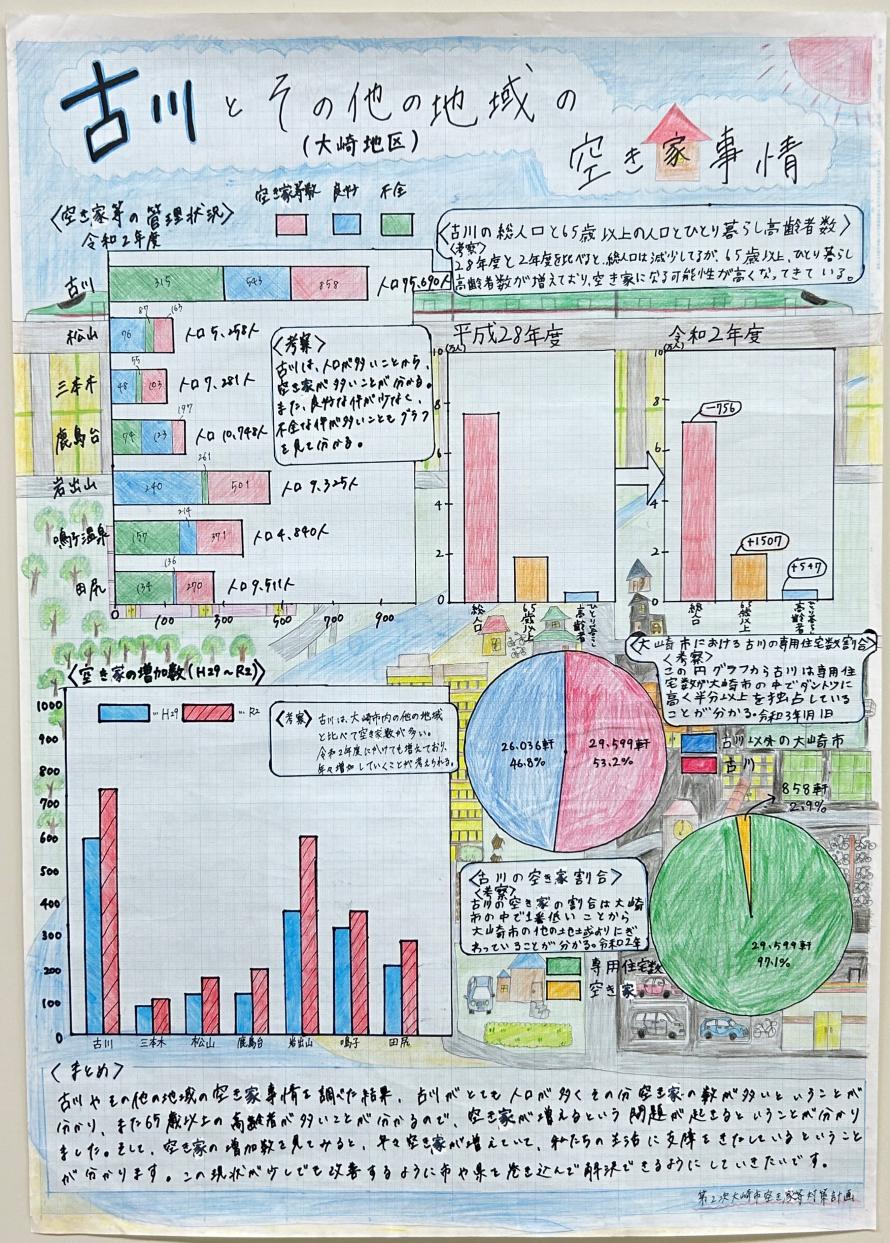 古川とその他の地域の
(大崎地区)
空き家事情
<空き家等の管理状況>
令和2年度
空き家等数 良好 不全
古川 315 543 858 人口75,690人
松山 76 87 163 人口5,258人
三本木 48 55 103 人口7,281人
鹿島台 74 123 197 人口10,748人
岩出山 240 261 501 人口9,325人
鳴子温泉 157 214 371 人口4,840人
田尻 134 136 270 人口9,511人
0 100 300 500 700 900
<考察>
古川は、人口が多いことから、
空き家が多いことが分かる。
また、良好な件が少なく、
不全な件が多いこともグラフ
を見て分かる。
<古川の総人口と65歳以上の人口とひとり暮らし高齢者数>
<考察>
28年度と2年度を比べると、総人口は減少してるが、65歳以上、ひとり暮らし
高齢者数が増えており、空き家になる可能性が高くなってきている。
平成28年度
(万人)
10
8
6
4
2
0
総人口
65歳以上
ひとり暮らし高齢者
令和2年度
(万人)
10
8
6
4
2
0
-756
+1507
+547
総人口
65歳以上
ひとり暮らし高齢者
<空き家の増加数(H29~R2)>
1000
900
800
700
600
500
400
300
200
100
0
…H29 …R2
<考察>
古川は、大崎市内の他の地域
と比べて空き家数が多い。
令和2年度にかけても増えており、
年々増加していくことが考えられる。
古川 三本木 松山 鹿島台 岩出山 鳴子 田尻
<大崎市における古川の専用住宅数割合>
<考察>
この円グラフから古川は専用住
宅数が大崎市の中でダントツに
高く半分以上を独占している
ことが分かる。令和3年1月1日
26.036軒
46.8%
29.599軒
53.2%
古川以外の大崎市
古川
<古川の空き家割合>
<考察>
古川の空き家の割合は大崎
市の中で1番低いことから
大崎市の他の土地よりにぎ
わっていることが分かる。令和2年
専用住宅数
空き家
858軒
2.9%
29.599軒
97.1%
<まとめ>
古川やその他の地域の空き家事情を調べた結果、古川がとても人口が多くその分空き家の数が多いということが
分かり、また65歳以上の高齢者が多いことが分かるので、空き家が増えるという問題が起きるということが分かり
ました。そして、空き家の増加数を見てみると、年々空き家が増えていて、私たちの生活に支障をきたしているということ
が分かります。この現状が少しでも改善するように市や県を巻き込んで解決できるようにしていきたいです。
第2次大崎市空き家等対策計画